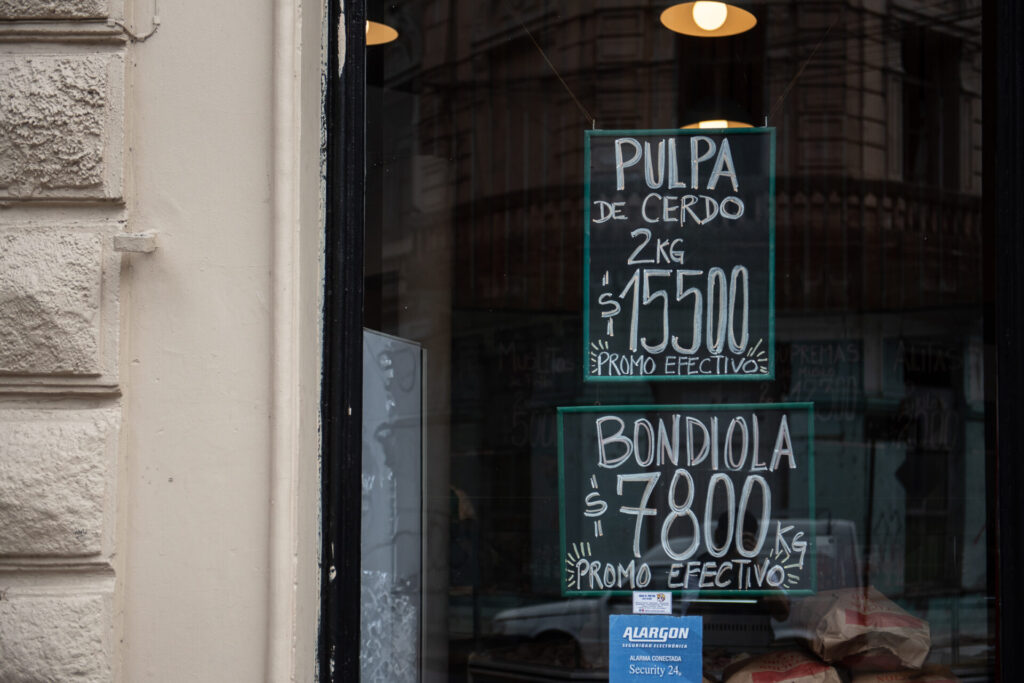 PULPA
DE CERDO
2KG
$15500
PROMO EFECTIVO
BONDIOLA
$7800 KG
PROMO EFECTIVO
ALARGON
SEGURIDAD ELECTRONICA
ALARMA CONECTADA
Security 24
MUSLITOS
SUPREMAS
ALITAS